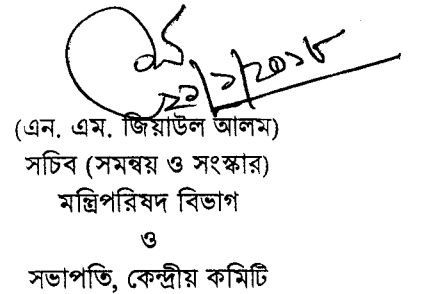 ২১/১/২০১৮
(এন. এম. জিয়াউল আলম)
সচিব (সমন্বয় ও সংস্কার)
মন্ত্রিপরিষদ বিভাগ
ও
সভাপতি, কেন্দ্রীয় কমিটি